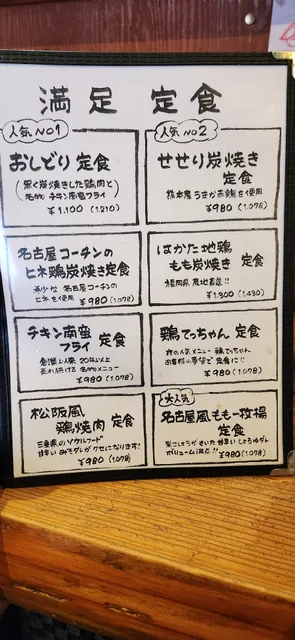 満足 定食
人気 NO1
おしどり 定食
(黒く炭焼きした鶏肉と
名物 チキン南蛮フライ)
¥1,100 (1,210)
人気 NO2
せせり炭焼き
定食
熊本産うまか赤鶏を使用
¥980 (1,078)
名古屋コーチンの
ヒネ鶏炭焼き定食
希少な 名古屋コーチンの
ヒネを使用 ¥980 (1,078)
はかた地鶏
もも炭焼き 定食
福岡県 産地直送!!
¥1,300 (1,430)
チキン南蛮
フライ 定食
創業より 20年以上
売れ続ける 名物メニュー
¥980 (1,078)
鶏てっちゃん 定食
夜の人気メニュー 鶏てっちゃん
お客様の要望で 定食に!!
¥980 (1,078)
松阪風
鶏焼肉 定食
三重県のソウルフード
甘辛いみそダレがクセになります!
¥980 (1,078)
大人気
名古屋風もも一枚揚
定食
黒こしょうがきいた甘辛いしょうゆダレ
ボリューム満点!! ¥980 (1,078)